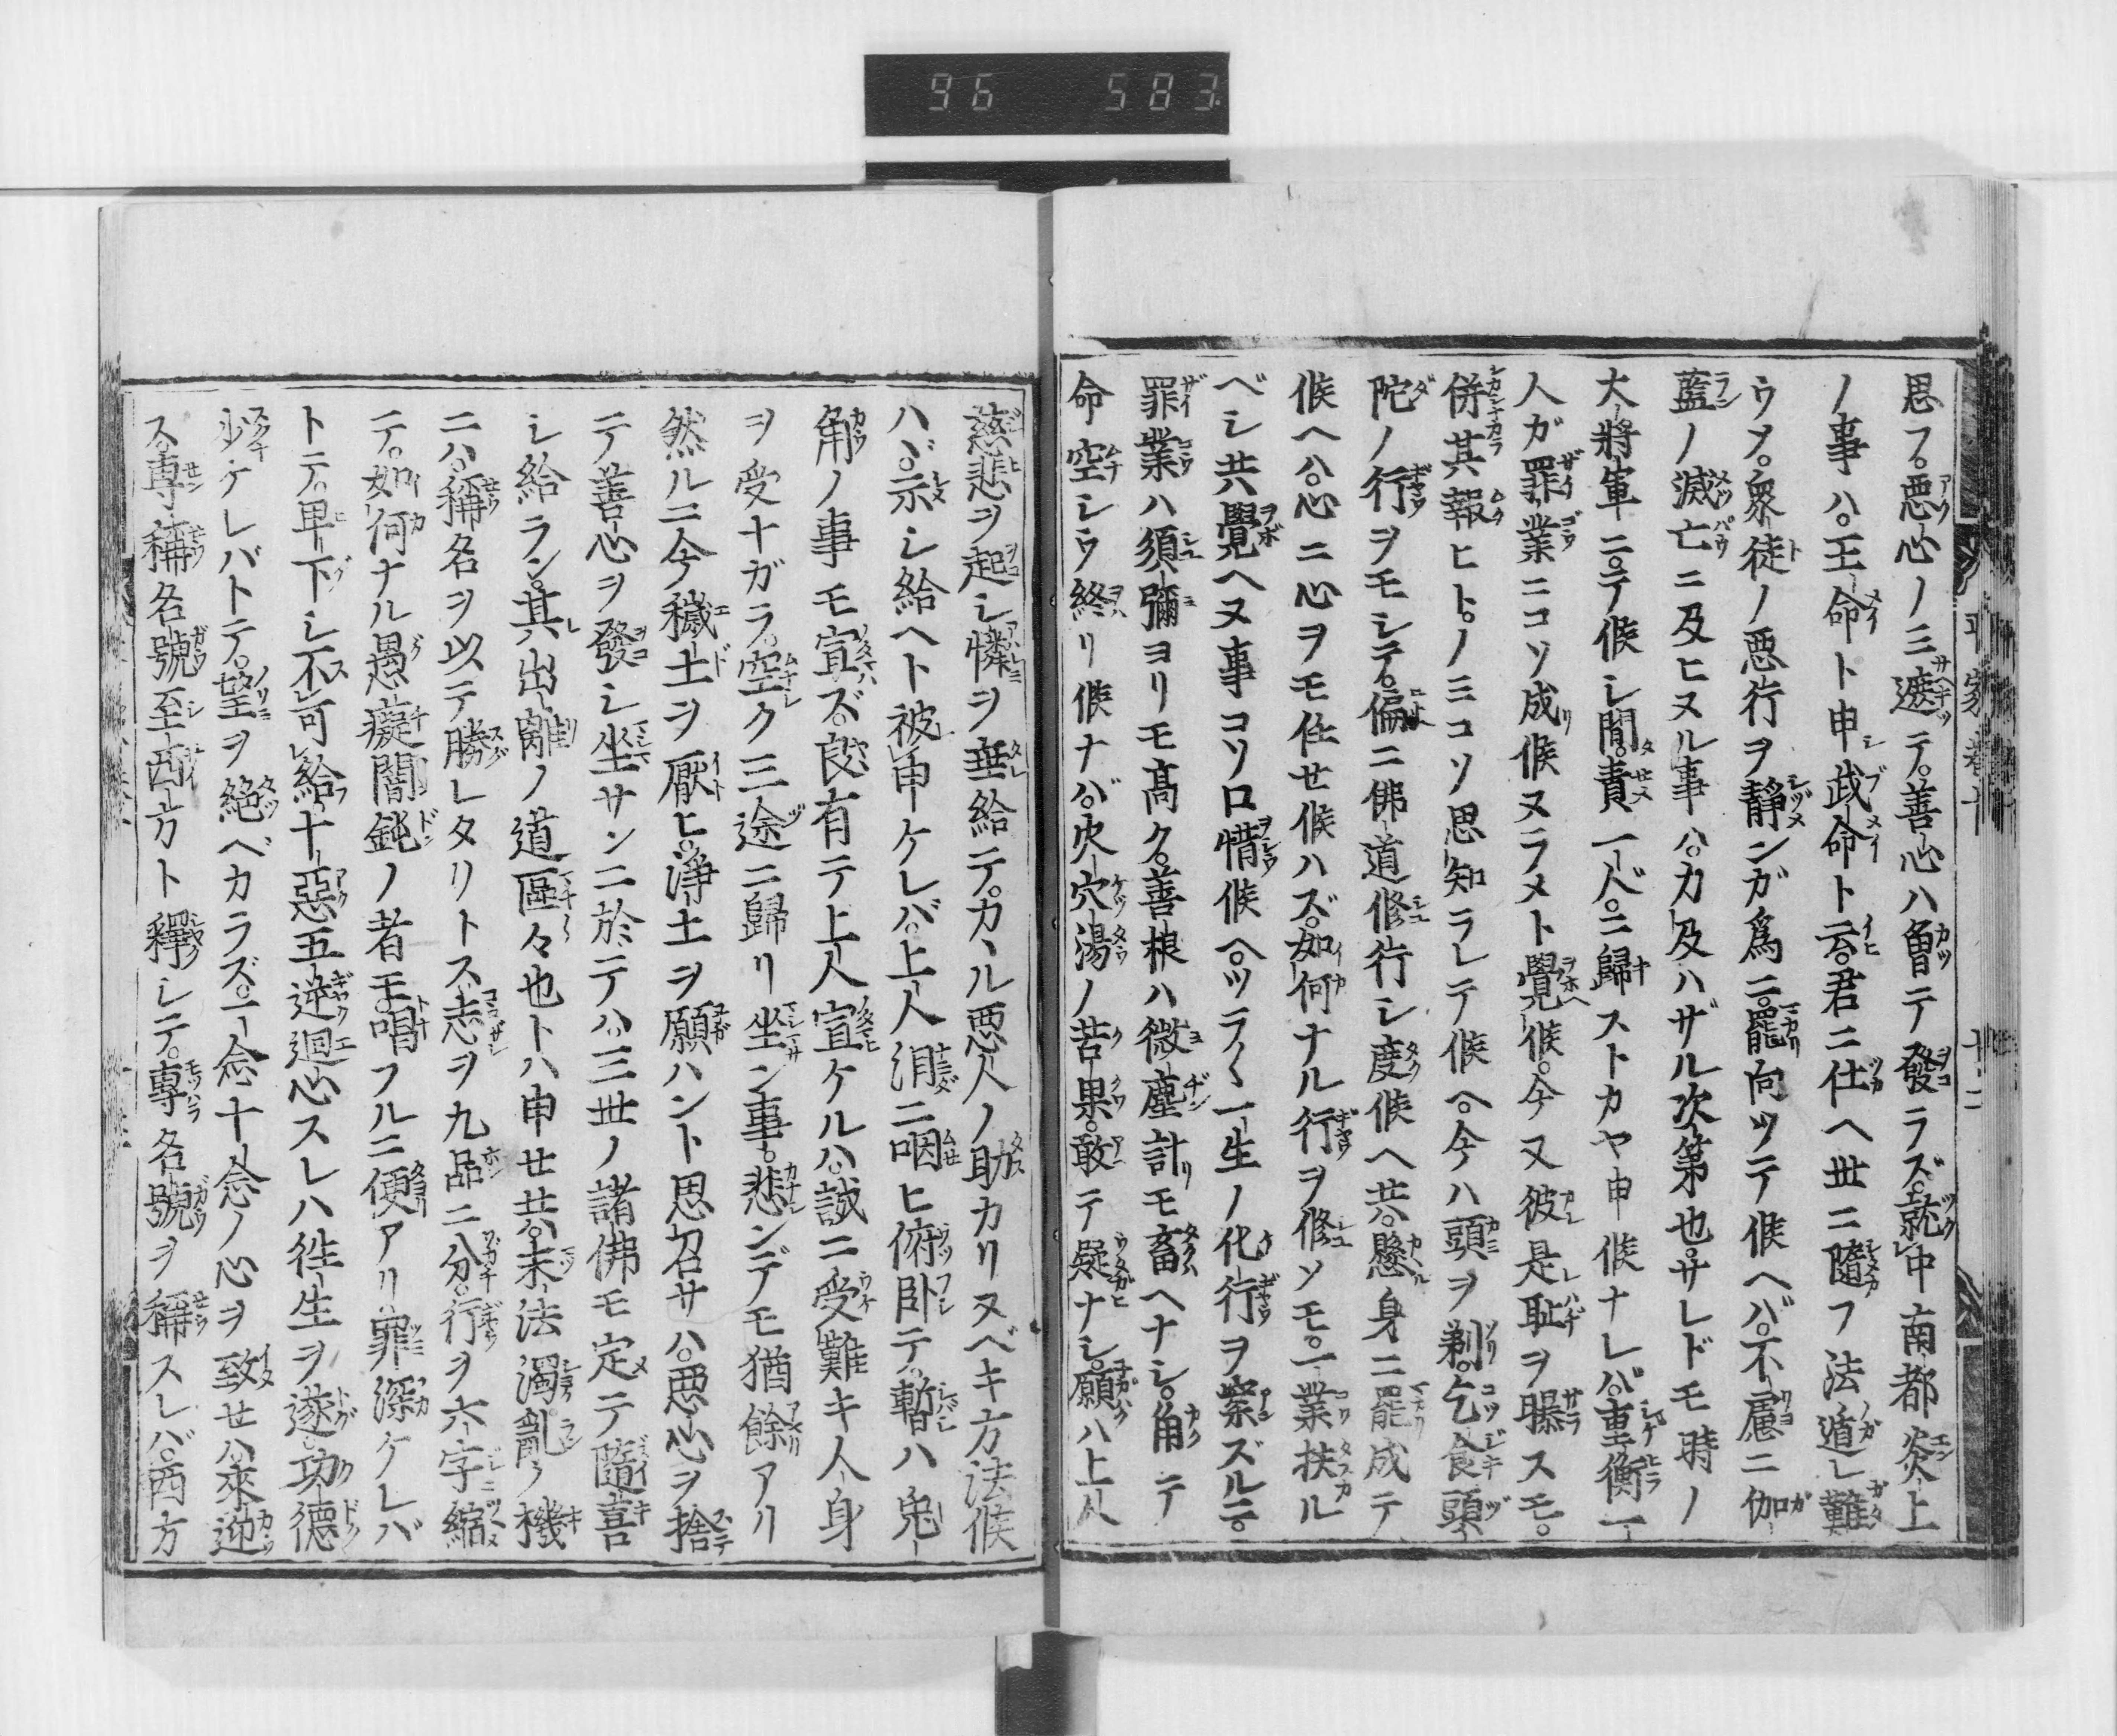 96 583
思フ。悪心ノミ遮テ。善心ハ曾テ發ラズ。就中南都炎上
ノ事ハ。王命ト申武命ト云。君ニ仕ヘ世ニ隨フ法遁レ難
ウメ。衆徒ノ悪行ヲ靜ンガ爲ニ。罷向ツテ候ヘバ。不慮ニ伽
藍ノ滅亡ニ及ヒヌル事ハ。力及ハザル次第也。サレドモ時ノ
大將軍ニ。テ候シ間。責一人。ニ歸ストカヤ申候ナレバ。重衡一
人ガ罪業ニコソ成候ヌラメト覺候。今又彼是耻ヲ曝スモ。
併其報ヒト。ノミコソ思知ラレテ候ヘ。今ハ頭ヲ剃。乞食頭
陀ノ行ヲモシテ。偏ニ佛道修行シ度候ヘ共。懸身ニ罷成テ
候ヘハ。心ニ心ヲモ任せ候ハズ。如何ナル行ヲ修ソモ。一業扶ル
ベシ共覺ヘヌ事コソ口惜候ヘ。ツラ〱一生ノ化行ヲ案ズルニ。
罪業ハ須彌ヨリモ髙ク。善根ハ微塵計モ畜ヘナシ。角テ
命空シウ終リ候ナバ。火穴湯ノ苦果。敢テ疑ナシ。願ハ上人
慈悲ヲ起シ憐ヲ垂給テ。カヽル悪人ノ助カリヌベキ方法候
ハヾ。示シ給ヘト被申ケレバ。上人涓ニ咽ヒ俯卧テ。暫ハ兎
角ノ事モ宣ズ。良有テ上人宣ケルハ。誠ニ受難キ人身
ヲ受ナガラ。空ク三途ニ歸リ坐ン事。悲ンデモ猶餘アリ
然ルニ今穢土ヲ厭ヒ。浄土ヲ願ハント思召サハ。悪心ヲ捨
テ善心ヲ發シ坐サンニ於テハ。三世ノ諸佛モ定テ隨喜
シ給ラン。其出離ノ道區々也トハ申せ共。末法濁亂ノ機
ニハ。稱名ヲ以テ勝レタリトス。志ヲ九品ニ分。行ヲ六字縮
テ。如何ナル愚癡闇鈍ノ者モ。唱フルニ便アリ。罪深ケレバ
トテ。卑下シ不可給。十惡五逆迴心スレハ往生ヲ遂。功德
少ケレバトテ。望ヲ絶ベカラズ。一念十念ノ心ヲ致せハ。來迎
ス。專稱名號至西方ト釋シテ。專名號ヲ稱スレバ。西方
平家巻十 十二